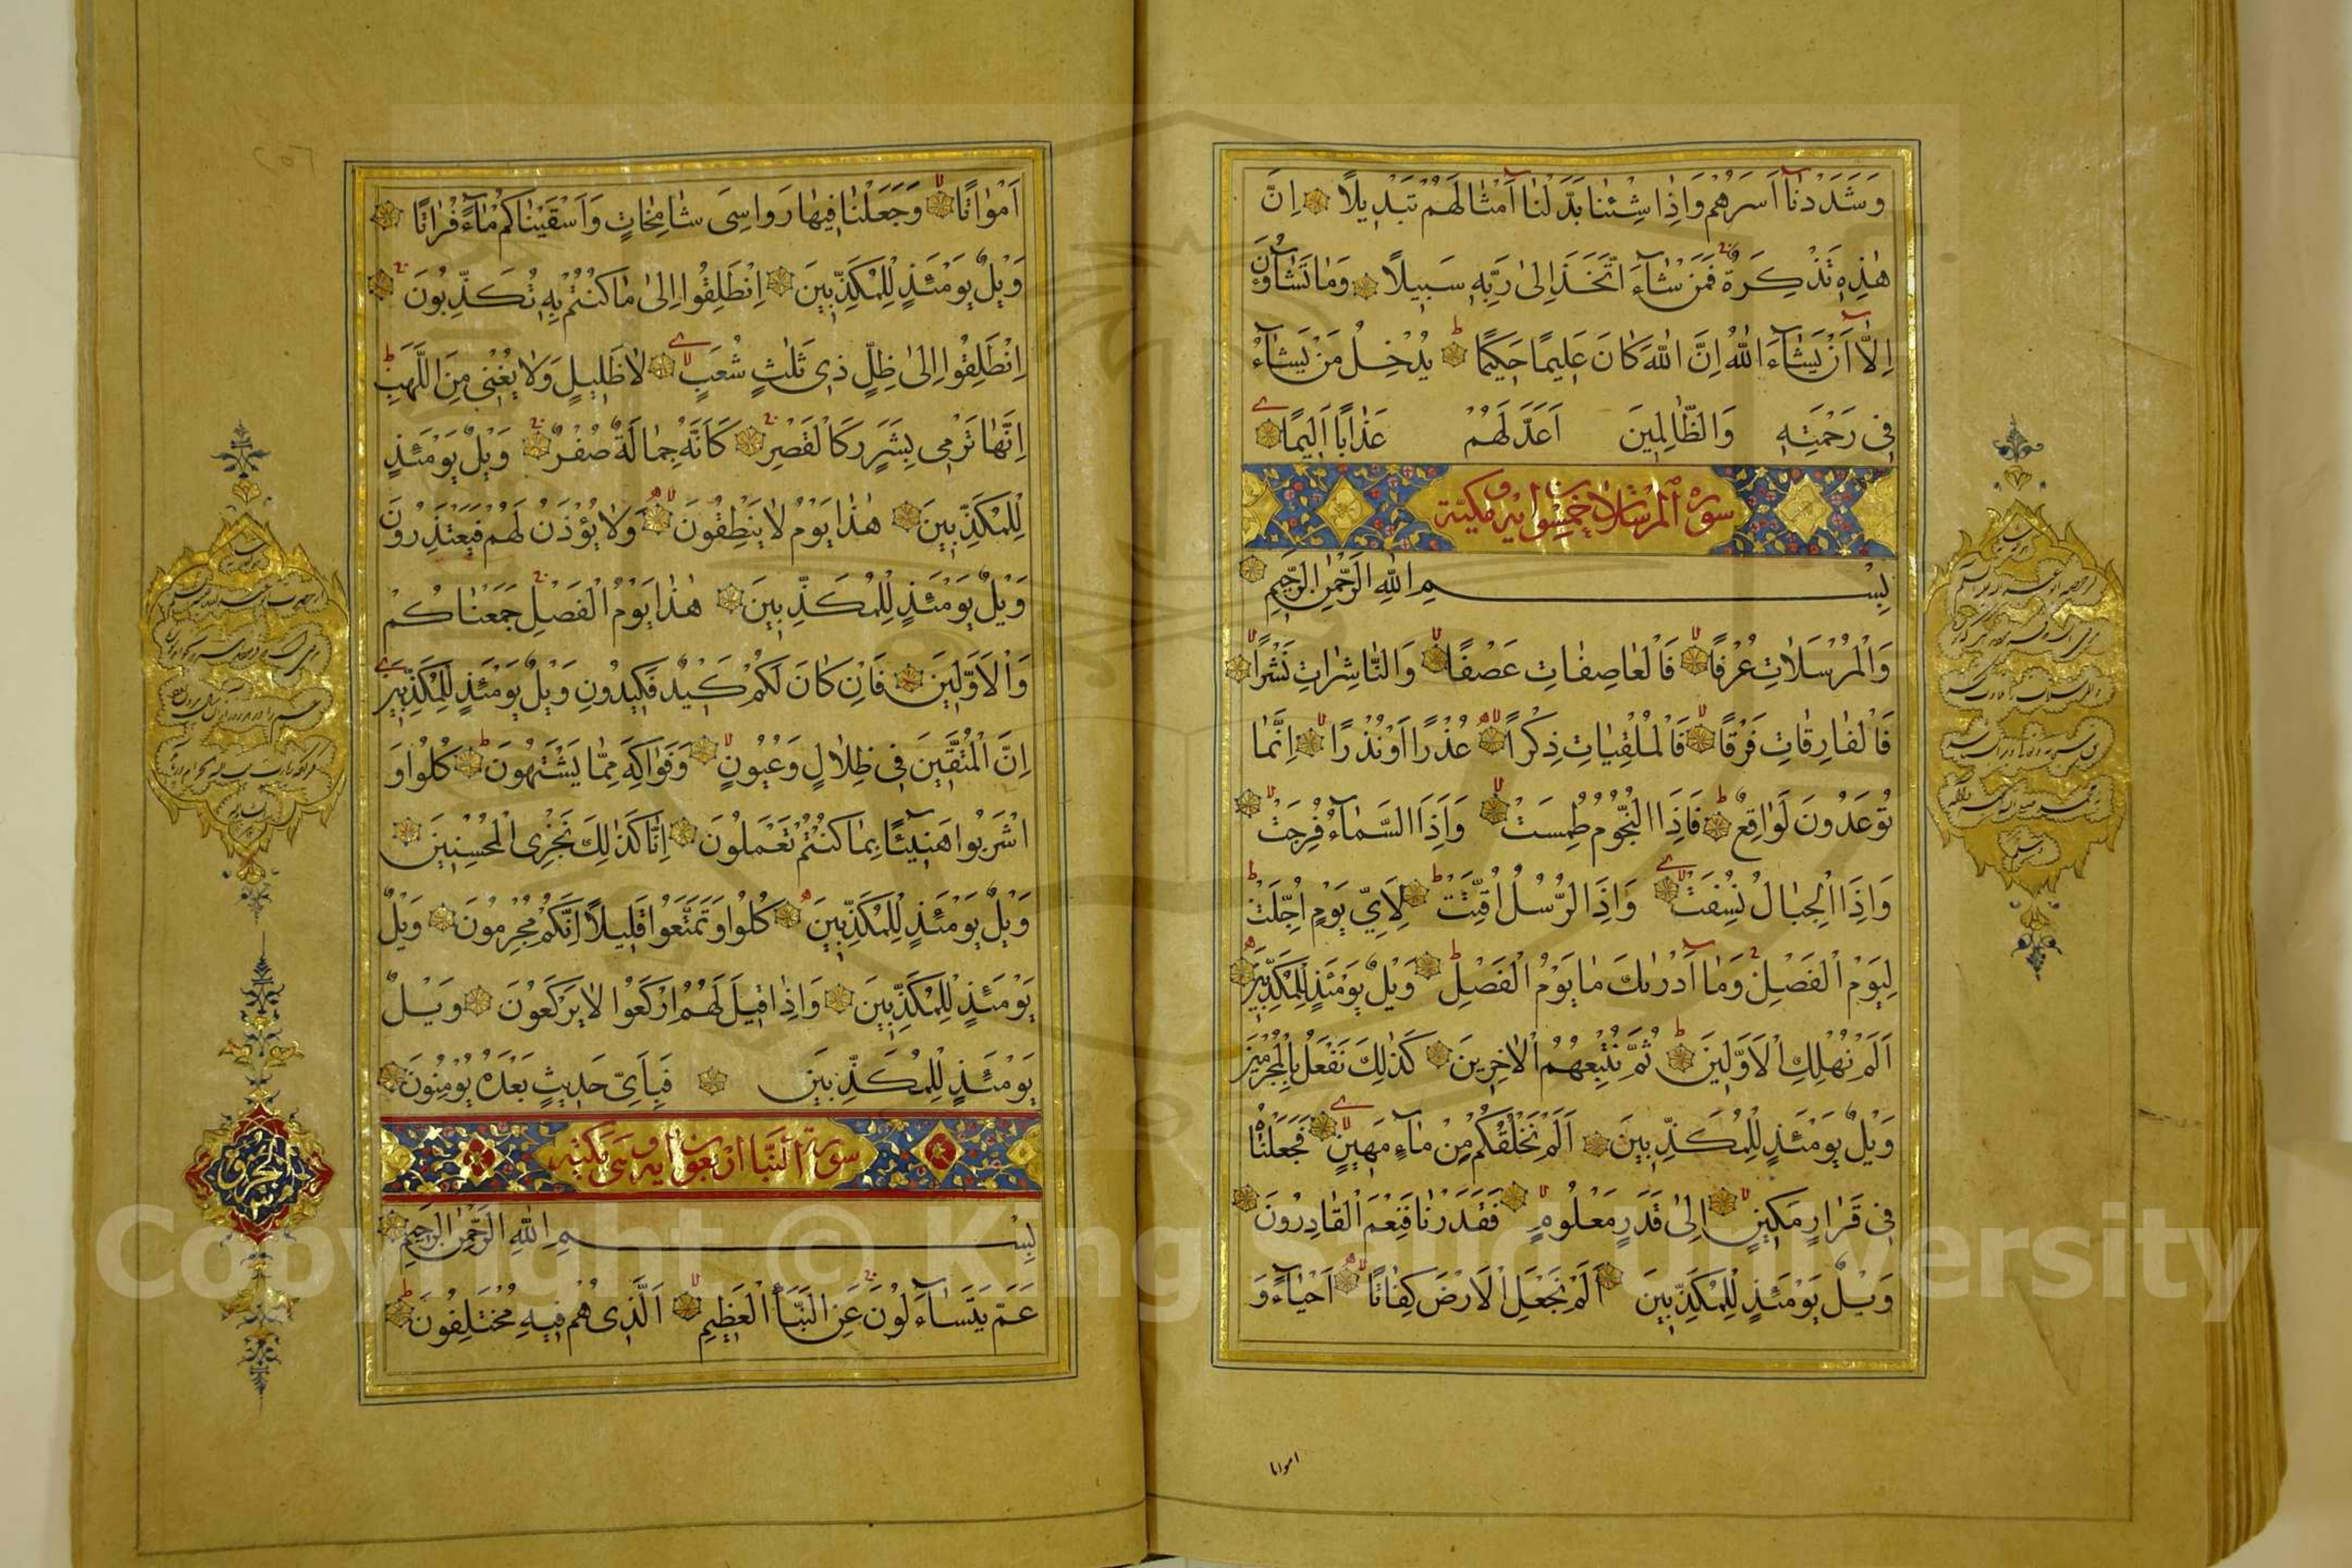 وَشَدَدْنَآ اَسْرَهُمْ وَاِذَا شِئْنَا بَدَّلْنَآ اَمْثَالَهُمْ تَبْدِيلًا اِنَّ
هٰذِهٖ تَذْكِرَةٌ فَمَنْ شَآءَ اتَّخَذَ اِلٰى رَبِّهٖ سَبِيلًا وَمَا تَشَآؤُنَ
اِلَّآ اَنْ يَشَآءَ اللّٰهُ اِنَّ اللّٰهَ كَانَ عَلِيمًا حَكِيمًا يُدْخِلُ مَنْ يَشَآءُ
فِى رَحْمَتِهٖ وَالظَّالِمِينَ اَعَدَّ لَهُمْ عَذَابًا اَلِيمًا
سورة المرسلات خمسون اية مكية
بِسْمِ اللّٰهِ الرَّحْمٰنِ الرَّحِيمِ
وَالْمُرْسَلَاتِ عُرْفًا فَالْعَاصِفَاتِ عَصْفًا وَالنَّاشِرَاتِ نَشْرًا
فَالْفَارِقَاتِ فَرْقًا فَالْمُلْقِيَاتِ ذِكْرًا عُذْرًا اَوْ نُذْرًا اِنَّمَا
تُوعَدُونَ لَوَاقِعٌ فَاِذَا النُّجُومُ طُمِسَتْ وَاِذَا السَّمَآءُ فُرِجَتْ
وَاِذَا الْجِبَالُ نُسِفَتْ وَاِذَا الرُّسُلُ اُقِّتَتْ لِاَيِّ يَوْمٍ اُجِّلَتْ
لِيَوْمِ الْفَصْلِ وَمَآ اَدْرٰىكَ مَا يَوْمُ الْفَصْلِ وَيْلٌ يَوْمَئِذٍ لِلْمُكَذِّبِينَ
اَلَمْ نُهْلِكِ الْاَوَّلِينَ ثُمَّ نُتْبِعُهُمُ الْاٰخِرِينَ كَذٰلِكَ نَفْعَلُ بِالْمُجْرِمِينَ
وَيْلٌ يَوْمَئِذٍ لِلْمُكَذِّبِينَ اَلَمْ نَخْلُقْكُمْ مِنْ مَآءٍ مَهِينٍ فَجَعَلْنَاهُ
فِى قَرَارٍ مَكِينٍ اِلٰى قَدَرٍ مَعْلُومٍ فَقَدَرْنَا فَنِعْمَ الْقَادِرُونَ
وَيْلٌ يَوْمَئِذٍ لِلْمُكَذِّبِينَ اَلَمْ نَجْعَلِ الْاَرْضَ كِفَاتًا اَحْيَآءً وَ
امواتا
اَمْوَاتًا وَجَعَلْنَا فِيهَا رَوَاسِىَ شَامِخَاتٍ وَاَسْقَيْنَاكُمْ مَآءً فُرَاتًا
وَيْلٌ يَوْمَئِذٍ لِلْمُكَذِّبِينَ اِنْطَلِقُوا اِلٰى مَا كُنْتُمْ بِهٖ تُكَذِّبُونَ
اِنْطَلِقُوا اِلٰى ظِلٍّ ذِى ثَلٰثِ شُعَبٍ لَا ظَلِيلٍ وَلَا يُغْنِى مِنَ اللَّهَبِ
اِنَّهَا تَرْمِى بِشَرَرٍ كَالْقَصْرِ كَاَنَّهُ جِمَالَةٌ صُفْرٌ وَيْلٌ يَوْمَئِذٍ
لِلْمُكَذِّبِينَ هٰذَا يَوْمُ لَا يَنْطِقُونَ وَلَا يُؤْذَنُ لَهُمْ فَيَعْتَذِرُونَ
وَيْلٌ يَوْمَئِذٍ لِلْمُكَذِّبِينَ هٰذَا يَوْمُ الْفَصْلِ جَمَعْنَاكُمْ
وَالْاَوَّلِينَ فَاِنْ كَانَ لَكُمْ كَيْدٌ فَكِيدُونِ وَيْلٌ يَوْمَئِذٍ لِلْمُكَذِّبِينَ
اِنَّ الْمُتَّقِينَ فِى ظِلَالٍ وَعُيُونٍ وَفَوَاكِهَ مِمَّا يَشْتَهُونَ كُلُوا وَ
اشْرَبُوا هَنِيٓئًا بِمَا كُنْتُمْ تَعْمَلُونَ اِنَّا كَذٰلِكَ نَجْزِى الْمُحْسِنِينَ
وَيْلٌ يَوْمَئِذٍ لِلْمُكَذِّبِينَ كُلُوا وَتَمَتَّعُوا قَلِيلًا اِنَّكُمْ مُجْرِمُونَ وَيْلٌ
يَوْمَئِذٍ لِلْمُكَذِّبِينَ وَاِذَا قِيلَ لَهُمُ ارْكَعُوا لَا يَرْكَعُونَ وَيْلٌ
يَوْمَئِذٍ لِلْمُكَذِّبِينَ فَبِاَىِّ حَدِيثٍ بَعْدَهُ يُؤْمِنُونَ
سورة النبأ اربعون اية وهى مكية
بِسْمِ اللّٰهِ الرَّحْمٰنِ الرَّحِيمِ
عَمَّ يَتَسَآءَلُونَ عَنِ النَّبَأِ الْعَظِيمِ اَلَّذِى هُمْ فِيهِ مُخْتَلِفُونَ
Copyright © King Saud University